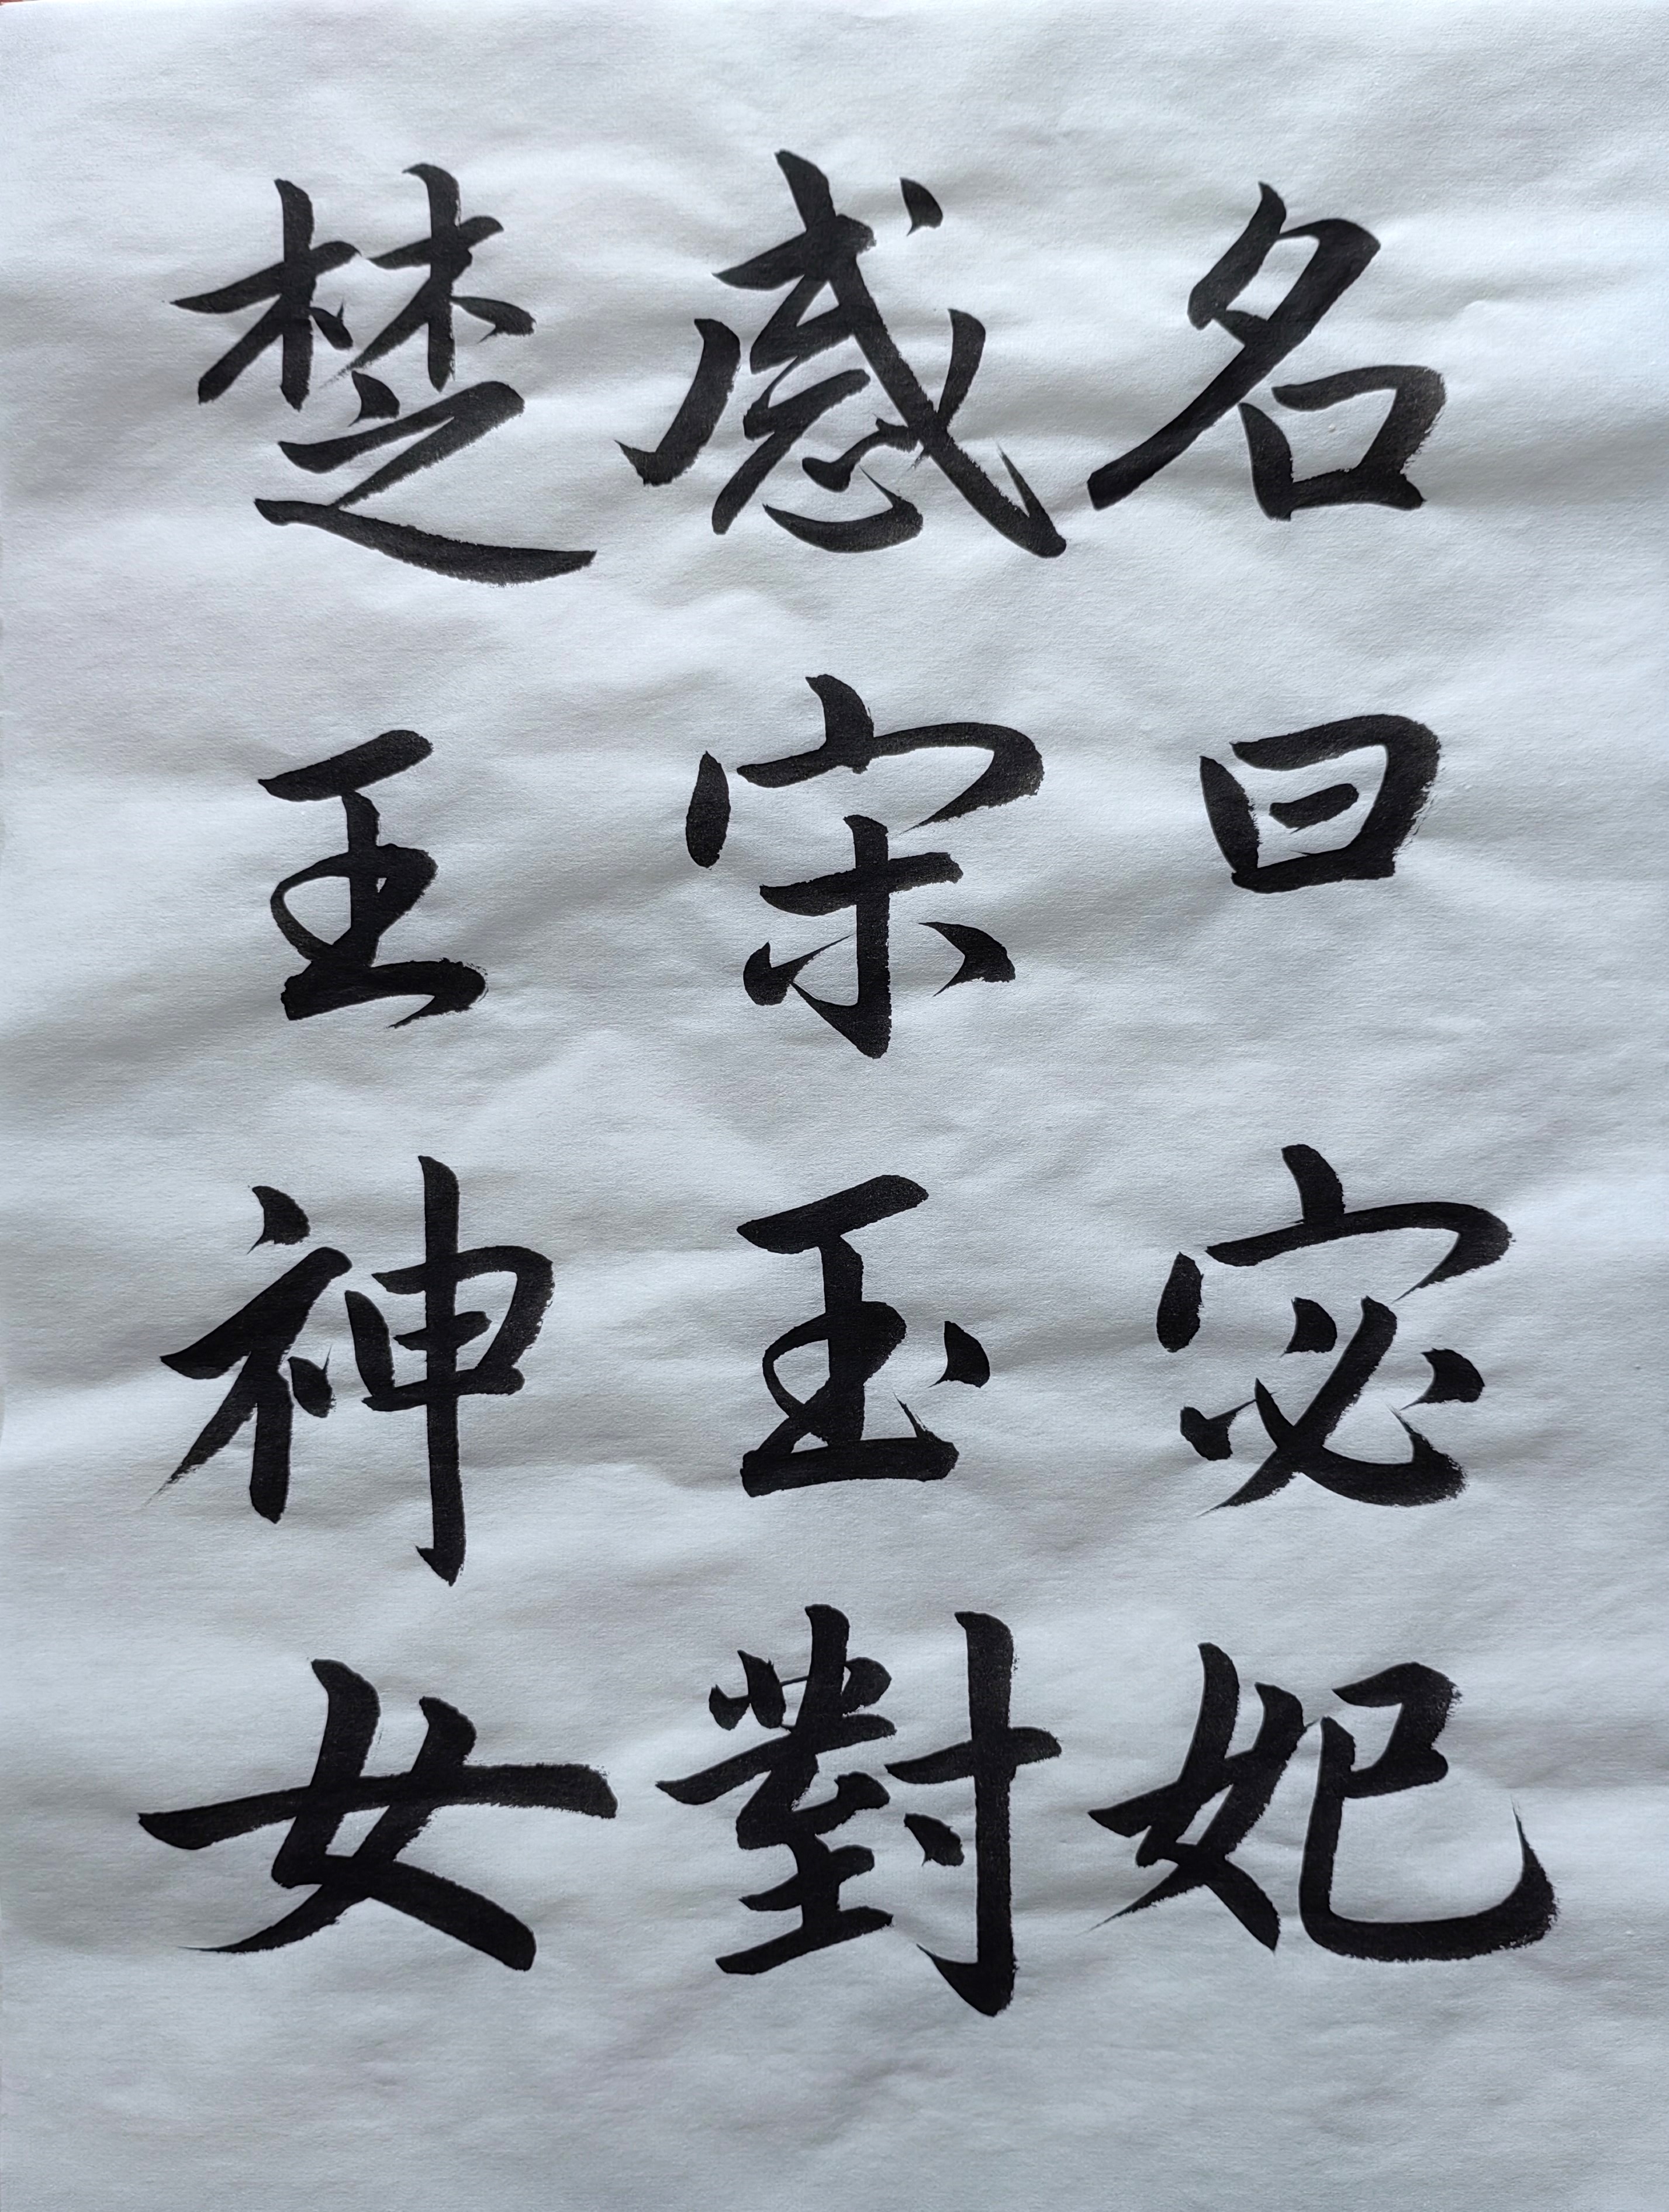 名曰宓妃
感宋玉對
楚王神女